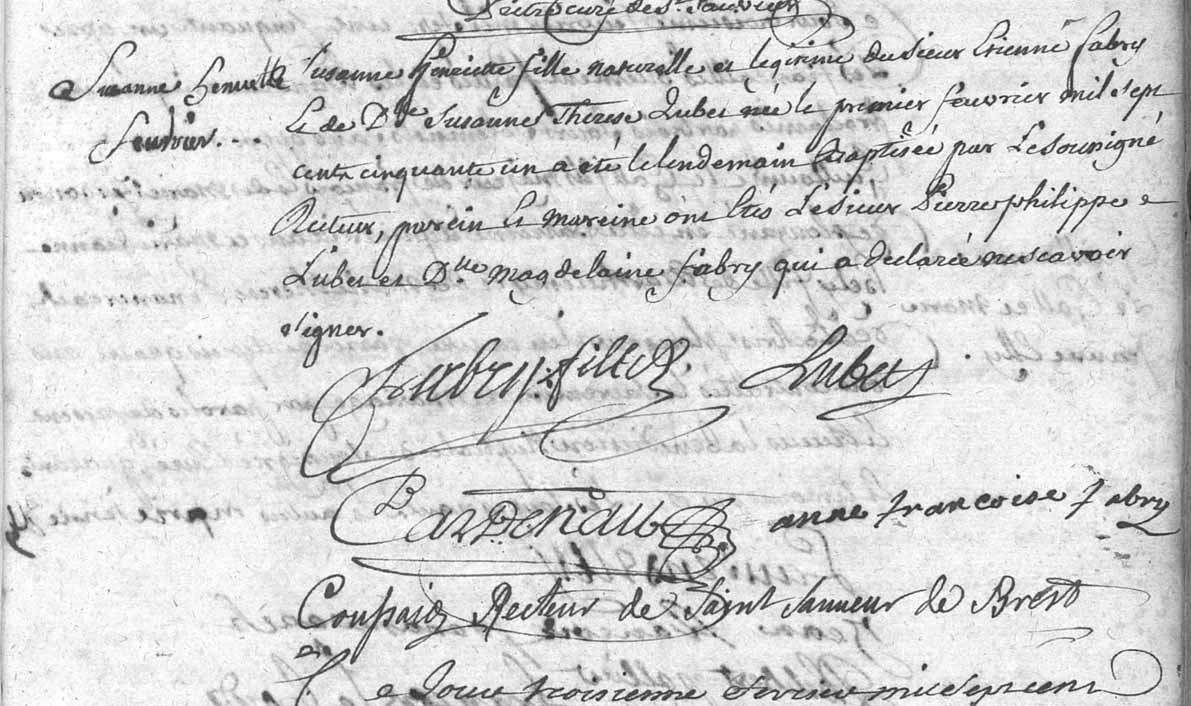 Prêtre curé de St. Sauveur
Susanne henriette
feuvrier.
Susanne henriette fille naturelle et legitime du Sieur Etienne fabry
Et de Dlle Susanne Therese Lubet née le premier feuvrier mil sept
cent cinquante un a été le lendemain Baptisée par Le Soussigné
Recteur, parein Et mareine ont Etés Le Sieur Pierre philippe
Lubet et Dlle magdelaine fabry qui a declarée ne scavoir
signer.
fabry fils Lubet
Bardenau anne francoise fabry
Recteur de Saint Sauveur de Brest
Le Jour troisieme fevrier mil sept cent